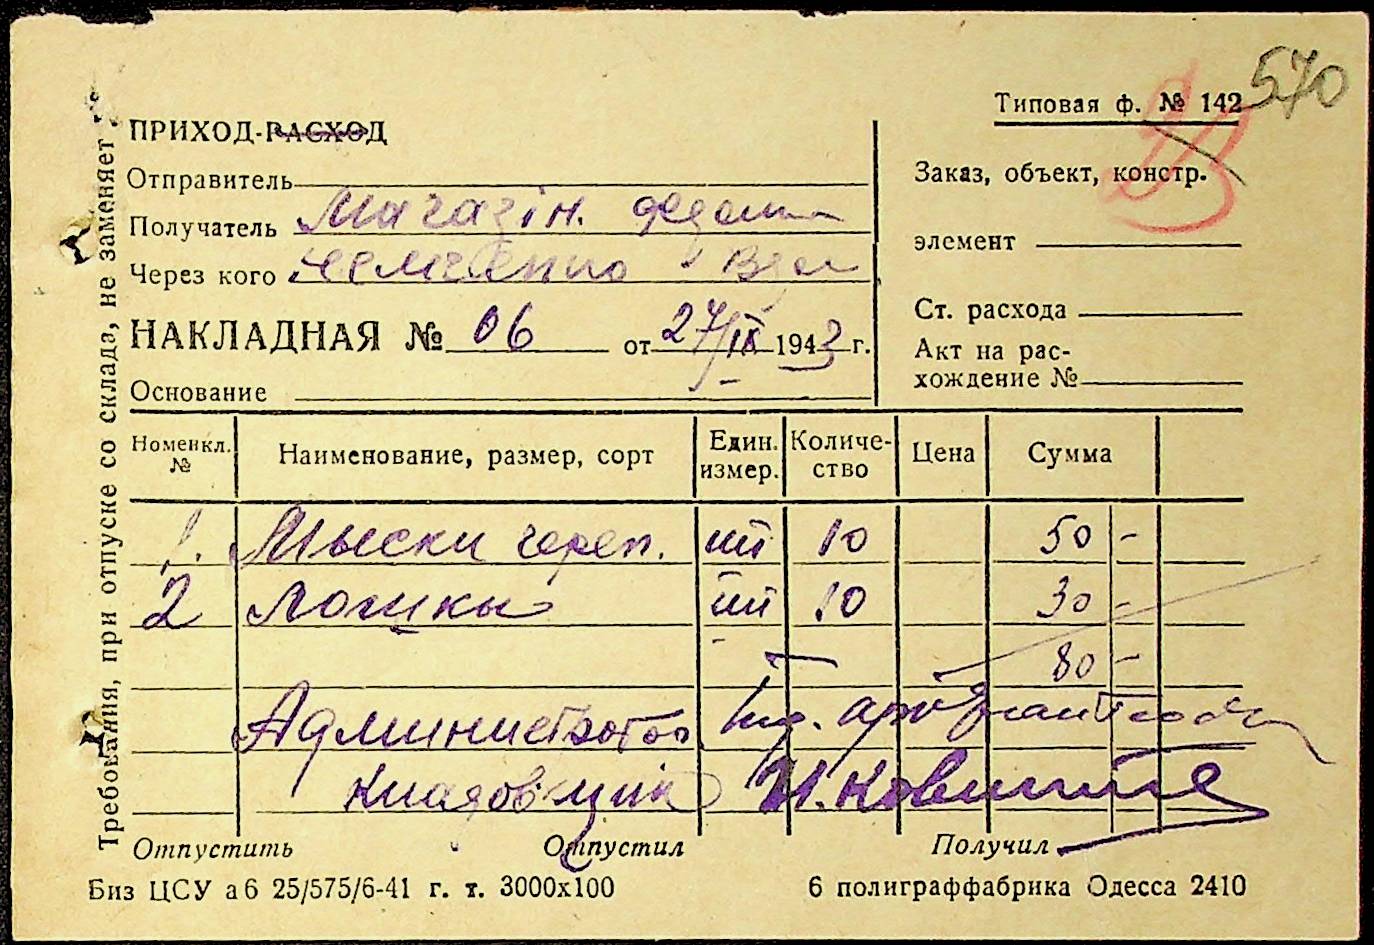 570
Типовая ф. № 142
ПРИХОД-РАСХОД
Отправитель
Получатель Магазін.
Через кого
НАКЛАДНАЯ № 06 от 27/IX 1943 г.
Основание
Заказ, объект, констр.
элемент
Ст. расхода
Акт на рас-
хождение №
Требования, при отпуске со склада, не заменяет
Номенкл. № Наименование, размер, сорт Един. измер. Количе-ство Цена Сумма
1. Мыски череп. шт 10 50 -
2 Ложки шт 10 30 -
80 -
Администратор
Кладовщик
Отпустить Отпустил Получил
Биз ЦСУ а6 25/575/6-41 г. т. 3000х100 6 полиграффабрика Одесса 2410